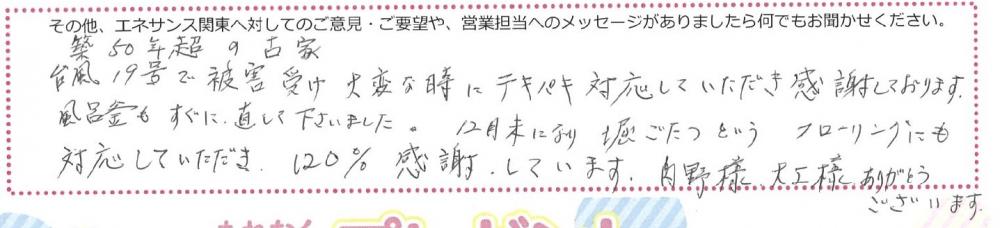 その他、エネサンス関東へ対してのご意見・ご要望や、営業担当へのメッセージがありましたら何でもお聞かせください。
築50年超の古家
台風19号で被害受け大変な時にテキパキ対応していただき感謝しております。
風呂釜もすぐに直して下さいました。12月末には 堀ごたつという フローリングにも
対応していただき、120%感謝しています。内野様、大工様、ありがとう
ございます。